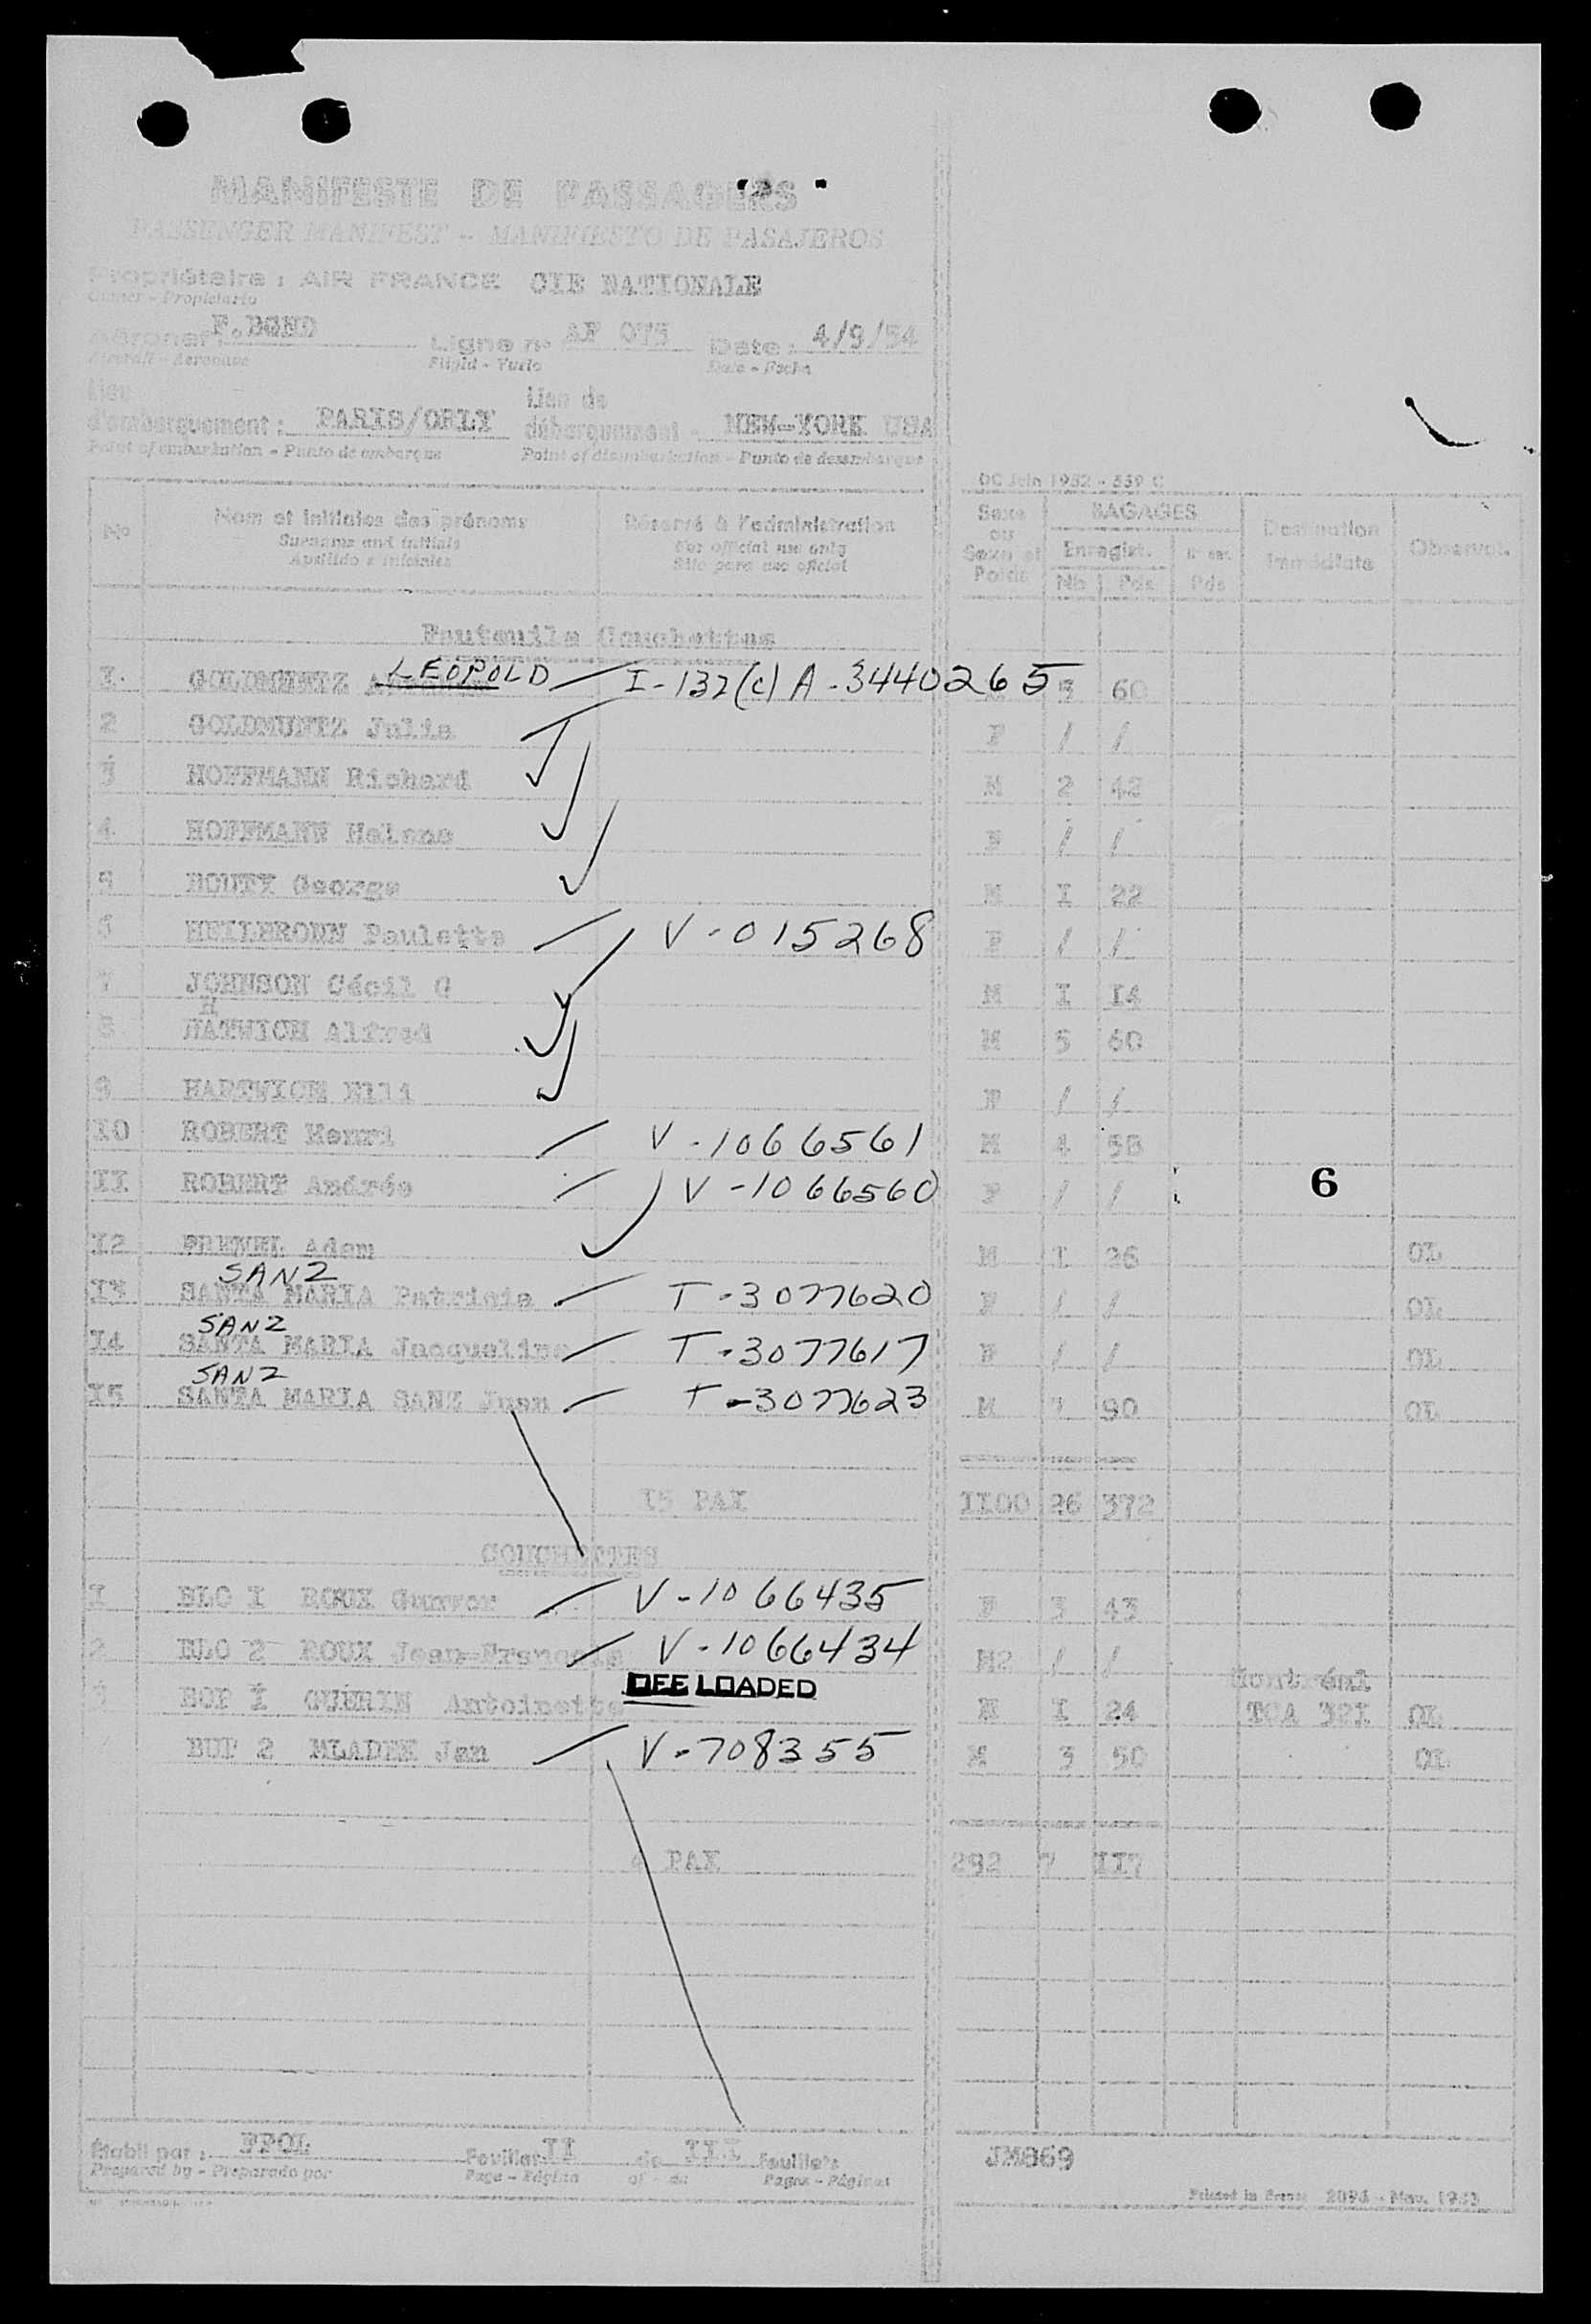 MANIFESTE DE PASSAGERS
PASSENGER MANIFEST - MANIFIESTO DE PASAJEROS
Propriétaire : AIR FRANCE CIE NATIONALE
Owner - Propietario
Aéronef : F.BGND Ligne n° AF 075 Date : 4/9/54
Aircraft - Aeronave Flight - Vuelo Date - Fecha
Lieu d'embarquement : PARIS/ORLY Lieu de débarquement - NEW-YORK USA
Point of embarkation - Punto de embarque Point of disembarkation - Punto de desembarque
DC Juin 1952 - 339 C
No Nom et initiales des prénoms Réservé à l'administration Sexe ou Sexe et Poids BAGAGES Destination Immédiate Observat.
Surname and initials For official use only Enregist.
Apellido e iniciales Sitio para uso oficial Nb Pds Pds
Fauteuils Couchettes
I. GOLDMUNTZ LEOPOLD I-132(c) A-3440265 5 60
2 GOLDMUNTZ Julia F / /
3 HOFFMANN Richard M 2 42
4 HOFFMANN Helene F / /
5 BOUTY George M I 22
6 HEILBRONN Paulette V-015268 F / /
7 JOHNSON Cécil G M I I4
R
8 HATWICH Alfred M 5 60
9 HARTWICH Elli F / /
I0 ROBERT Henri V-1066561 M 4 58
II ROBERT Andrée V-1066560 F / /
6
I2 FRENEL Adam M I 26 OL
SANZ
I3 SANTA MARIA Patricia T-3077620 F / / OL
SANZ
I4 SANTA MARIA Jacqueline T-3077617 F / / OL
SANZ
I5 SANTA MARIA SANZ Juan T-3077623 M 7 90 OL
I5 PAX II00 26 372
COUCHETTES
I BLO I ROUX Gunvor V-1066435 F 3 43
2 BLO 2 ROUX Jean-Francois V-1066434 M2 / /
OFF LOADED
3 BOP I GUÉRIN Antoinette I 24 Montréal TCA 32I OL
BUP 2 MLADEK Jan V-708355 M 3 50 OL
4 PAX 292 7 II7
Établi par : FPOL Feuillet II de III feuillets
Prepared by - Preparado por Page - Página of - de Pages - Páginas
JM869
Printed in France 2094 - Nov. 1953